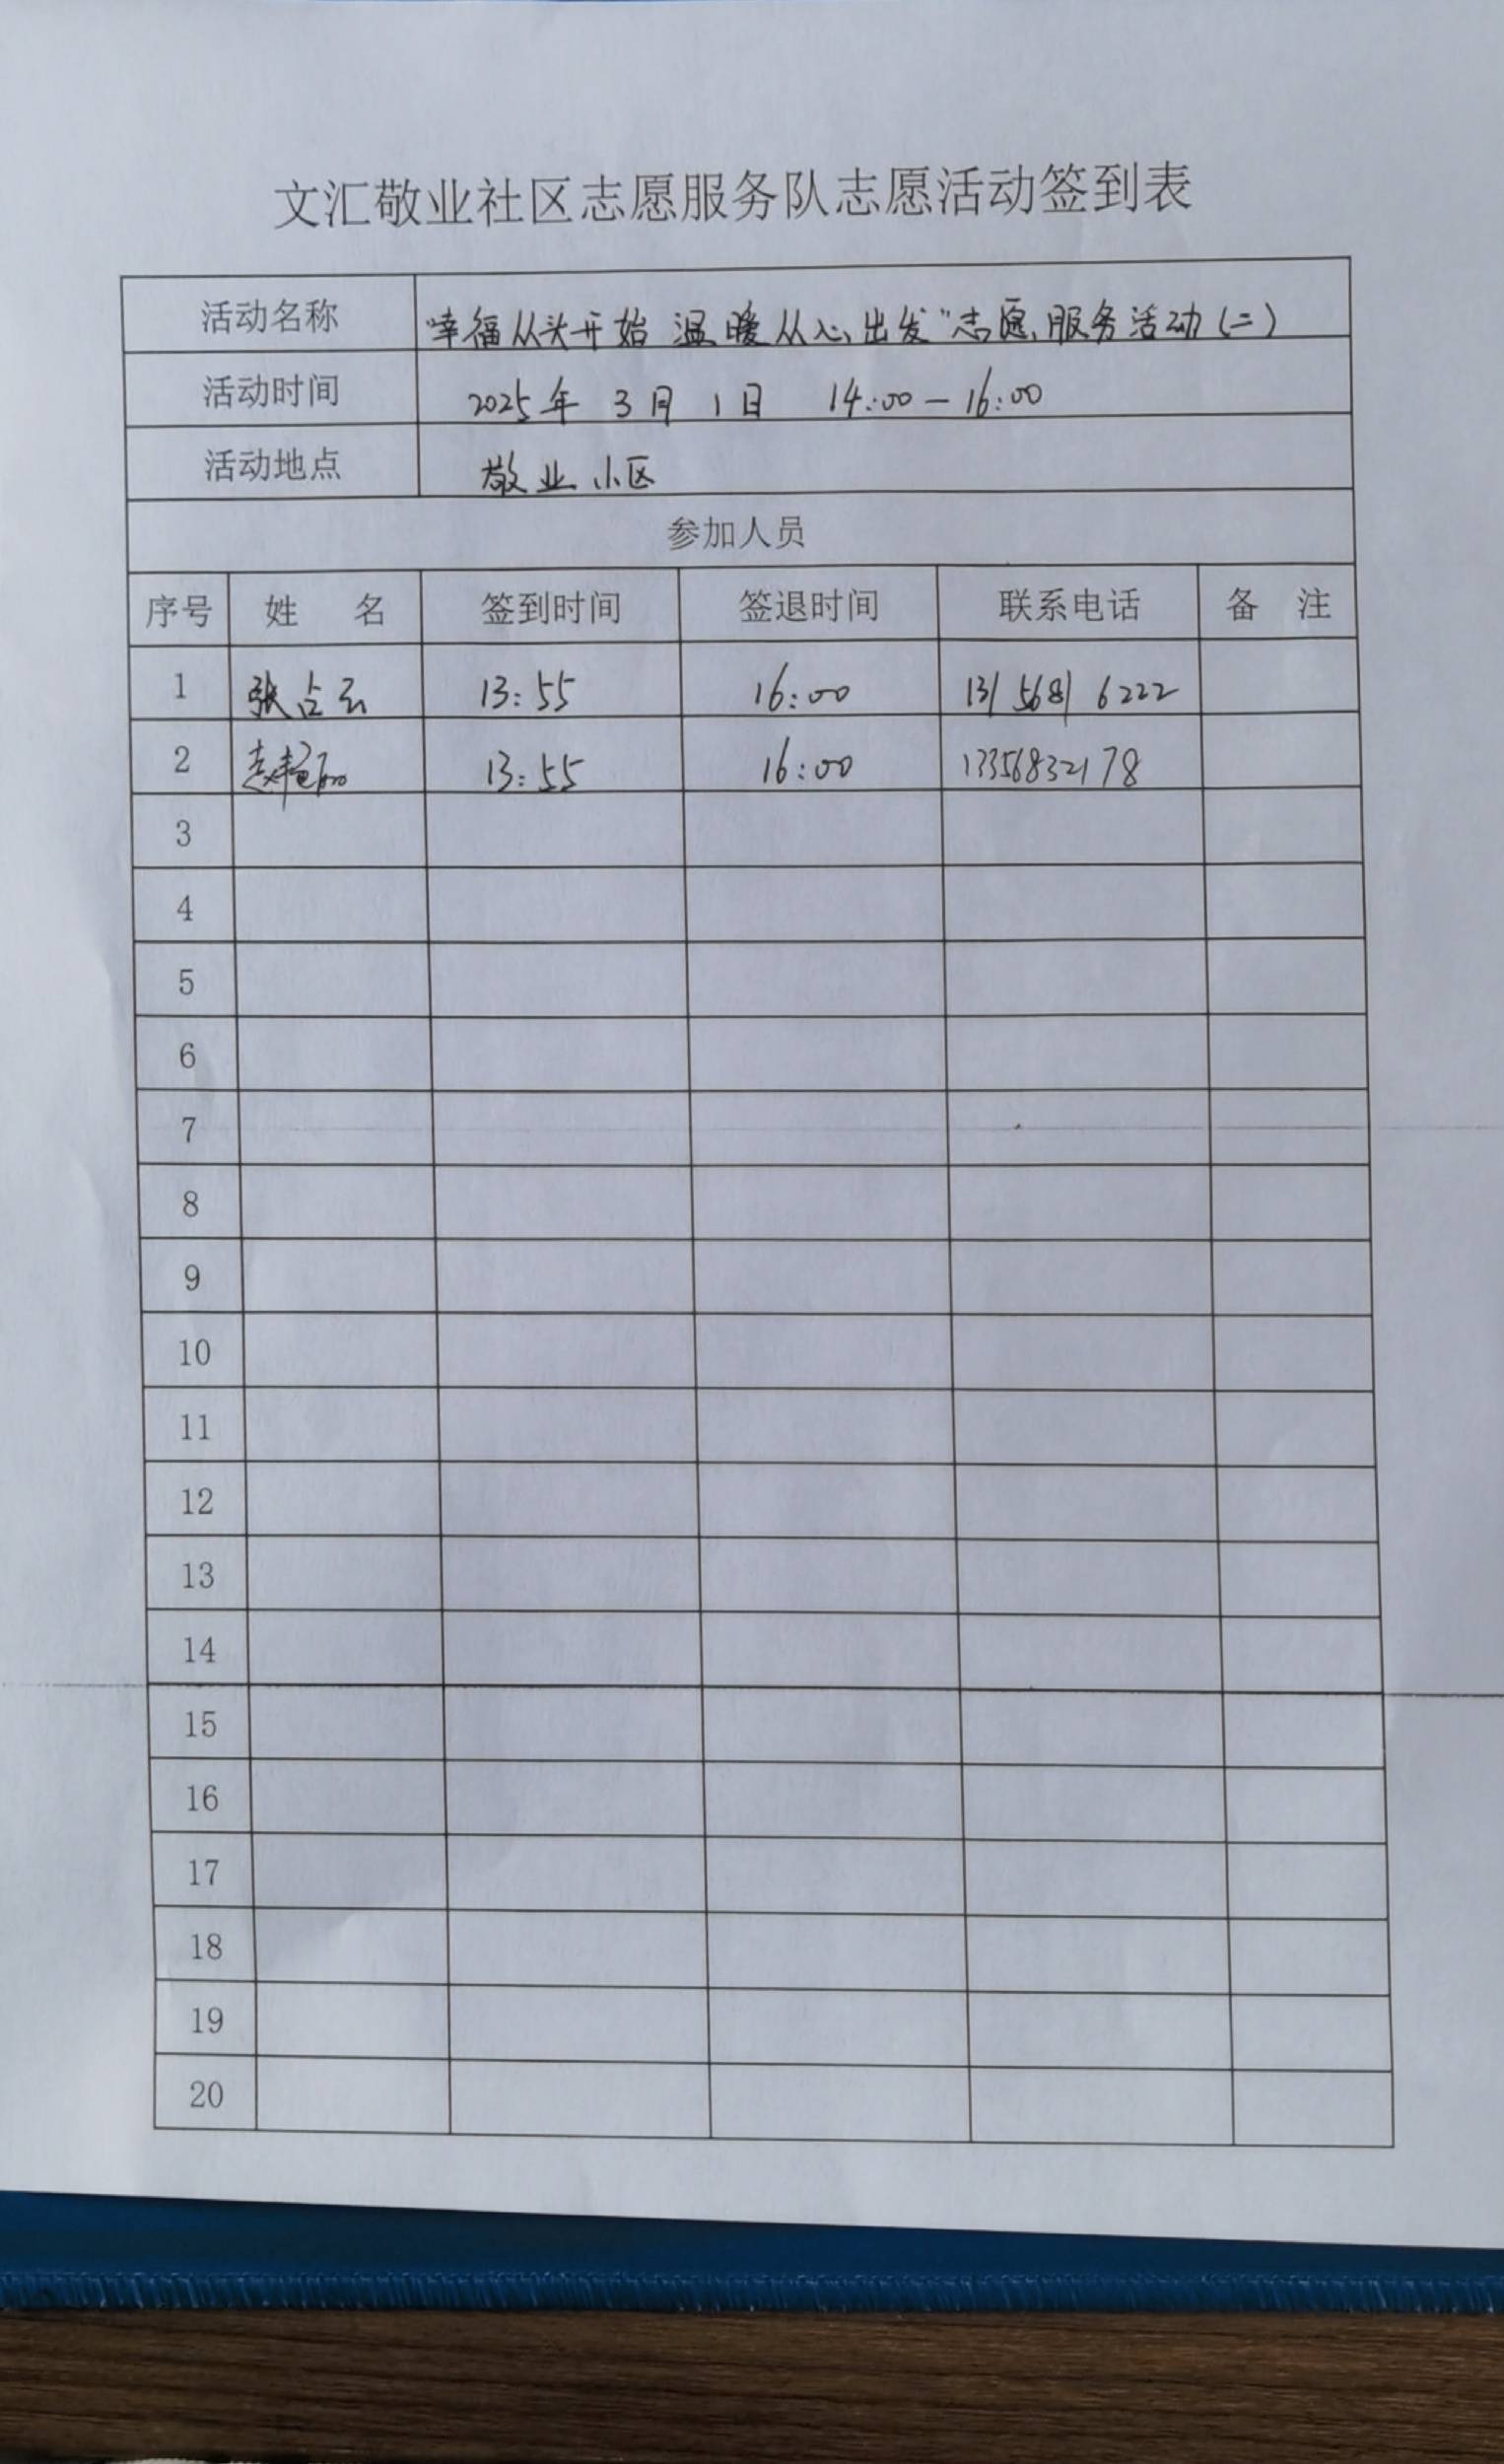 文汇敬业社区志愿服务队志愿活动签到表
活动名称 “幸福从头开始 温暖从心出发”志愿服务活动(二)
活动时间 2025年 3月 1日 14:00-16:00
活动地点 敬业小区
参加人员
序号 姓 名 签到时间 签退时间 联系电话 备 注
1 张占云 13:55 16:00 131 5681 6222
2 13:55 16:00 13356832178
3
4
5
6
7
8
9
10
11
12
13
14
15
16
17
18
19
20